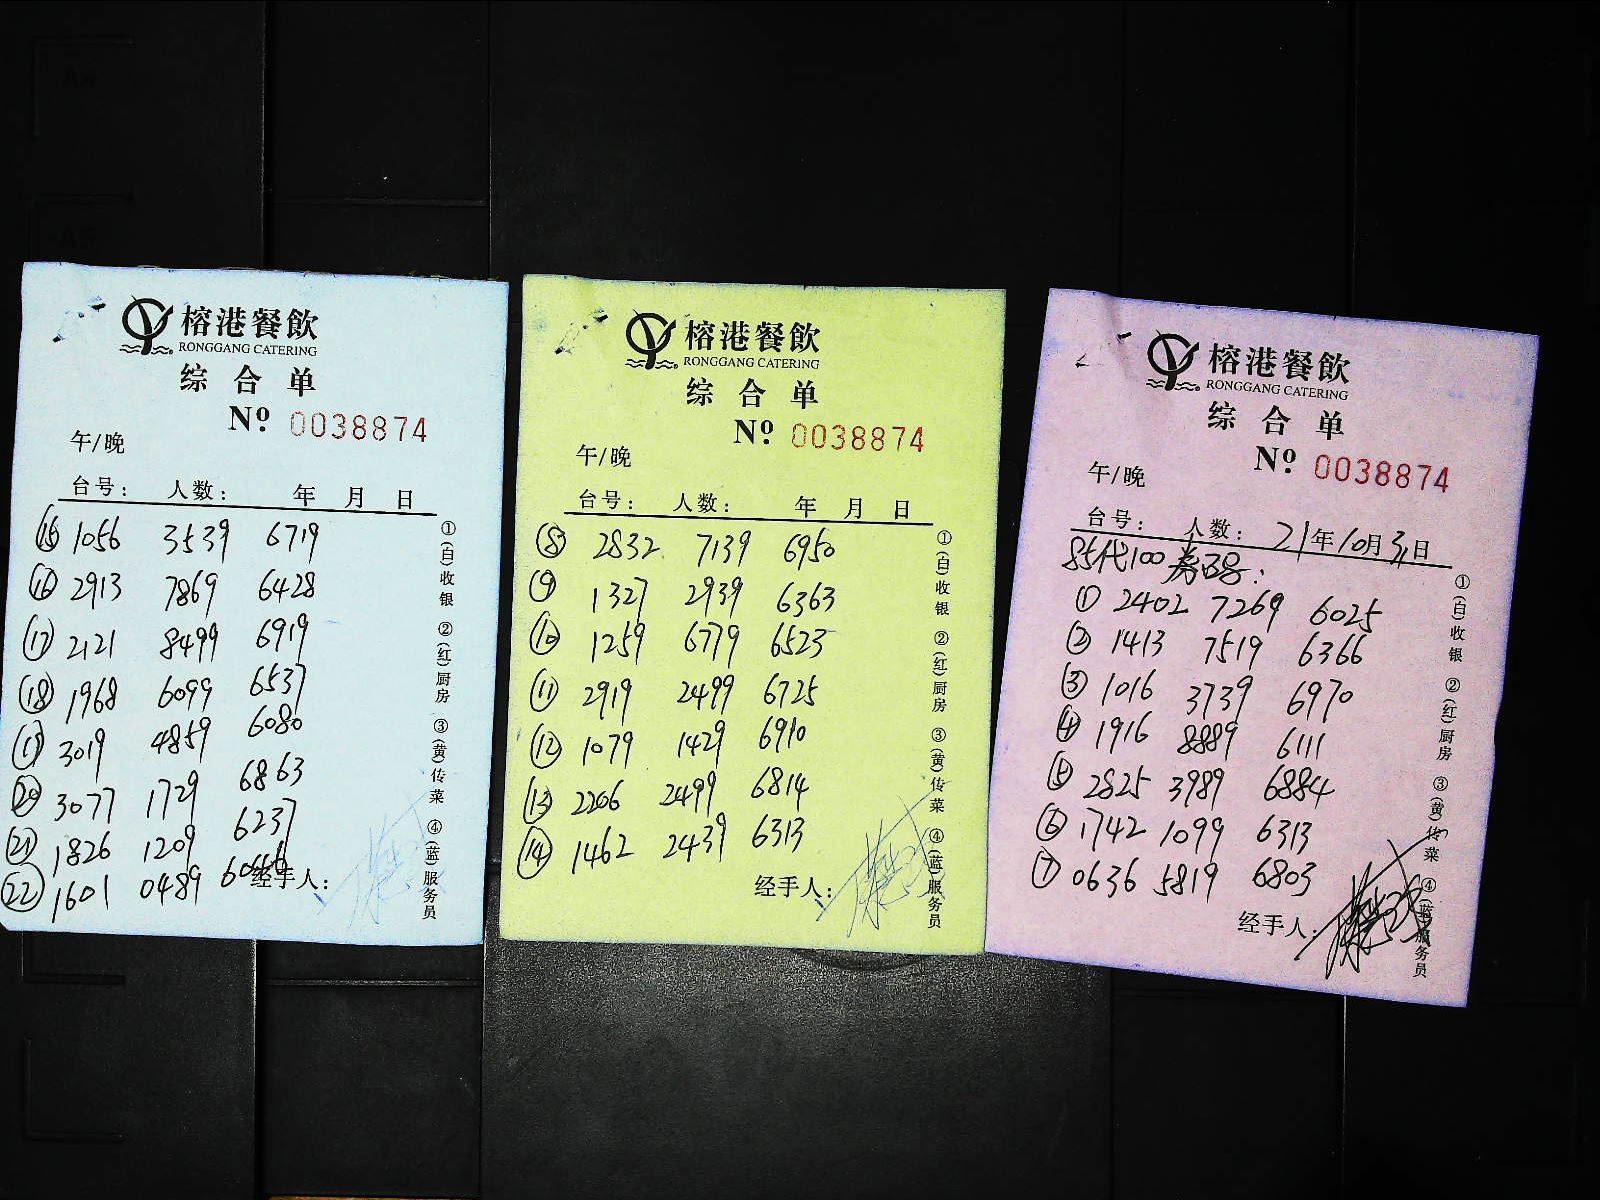 榕港餐飲
RONGGANG CATERING
综合单
Nº 0038874
午/晚
台号: 人数: 年 月 日
⑮ 1056 3539 6719
⑯ 2913 7869 6428
⑰ 2121 8499 6919
⑱ 1968 6099 6537
⑲ 3019 4859 6080
⑳ 3077 1729 6863
㉑ 1826 1209 6237
㉒ 1601 0489
经手人:
①(白)收银 ②(红)厨房 ③(黄)传菜 ④(蓝)服务员
榕港餐飲
RONGGANG CATERING
综合单
Nº 0038874
午/晚
台号: 人数: 年 月 日
⑧ 2832 7139 6950
⑨ 1327 2939 6363
⑩ 1259 6779 6523
⑪ 2919 2499 6725
⑫ 1079 1429 6910
⑬ 2206 2499 6814
⑭ 1462 2439 6313
经手人:
①(白)收银 ②(红)厨房 ③(黄)传菜 ④(蓝)服务员
榕港餐飲
RONGGANG CATERING
综合单
Nº 0038874
午/晚
台号: 人数: 21年10月31日
85代100券码:
① 2402 7269 6025
② 1413 7519 6366
③ 1016 3739 6970
④ 1916 8889 6111
⑤ 2825 3989 6884
⑥ 1742 1099 6313
⑦ 0636 5819 6803
经手人:
①(白)收银 ②(红)厨房 ③(黄)传菜 ④(蓝)服务员